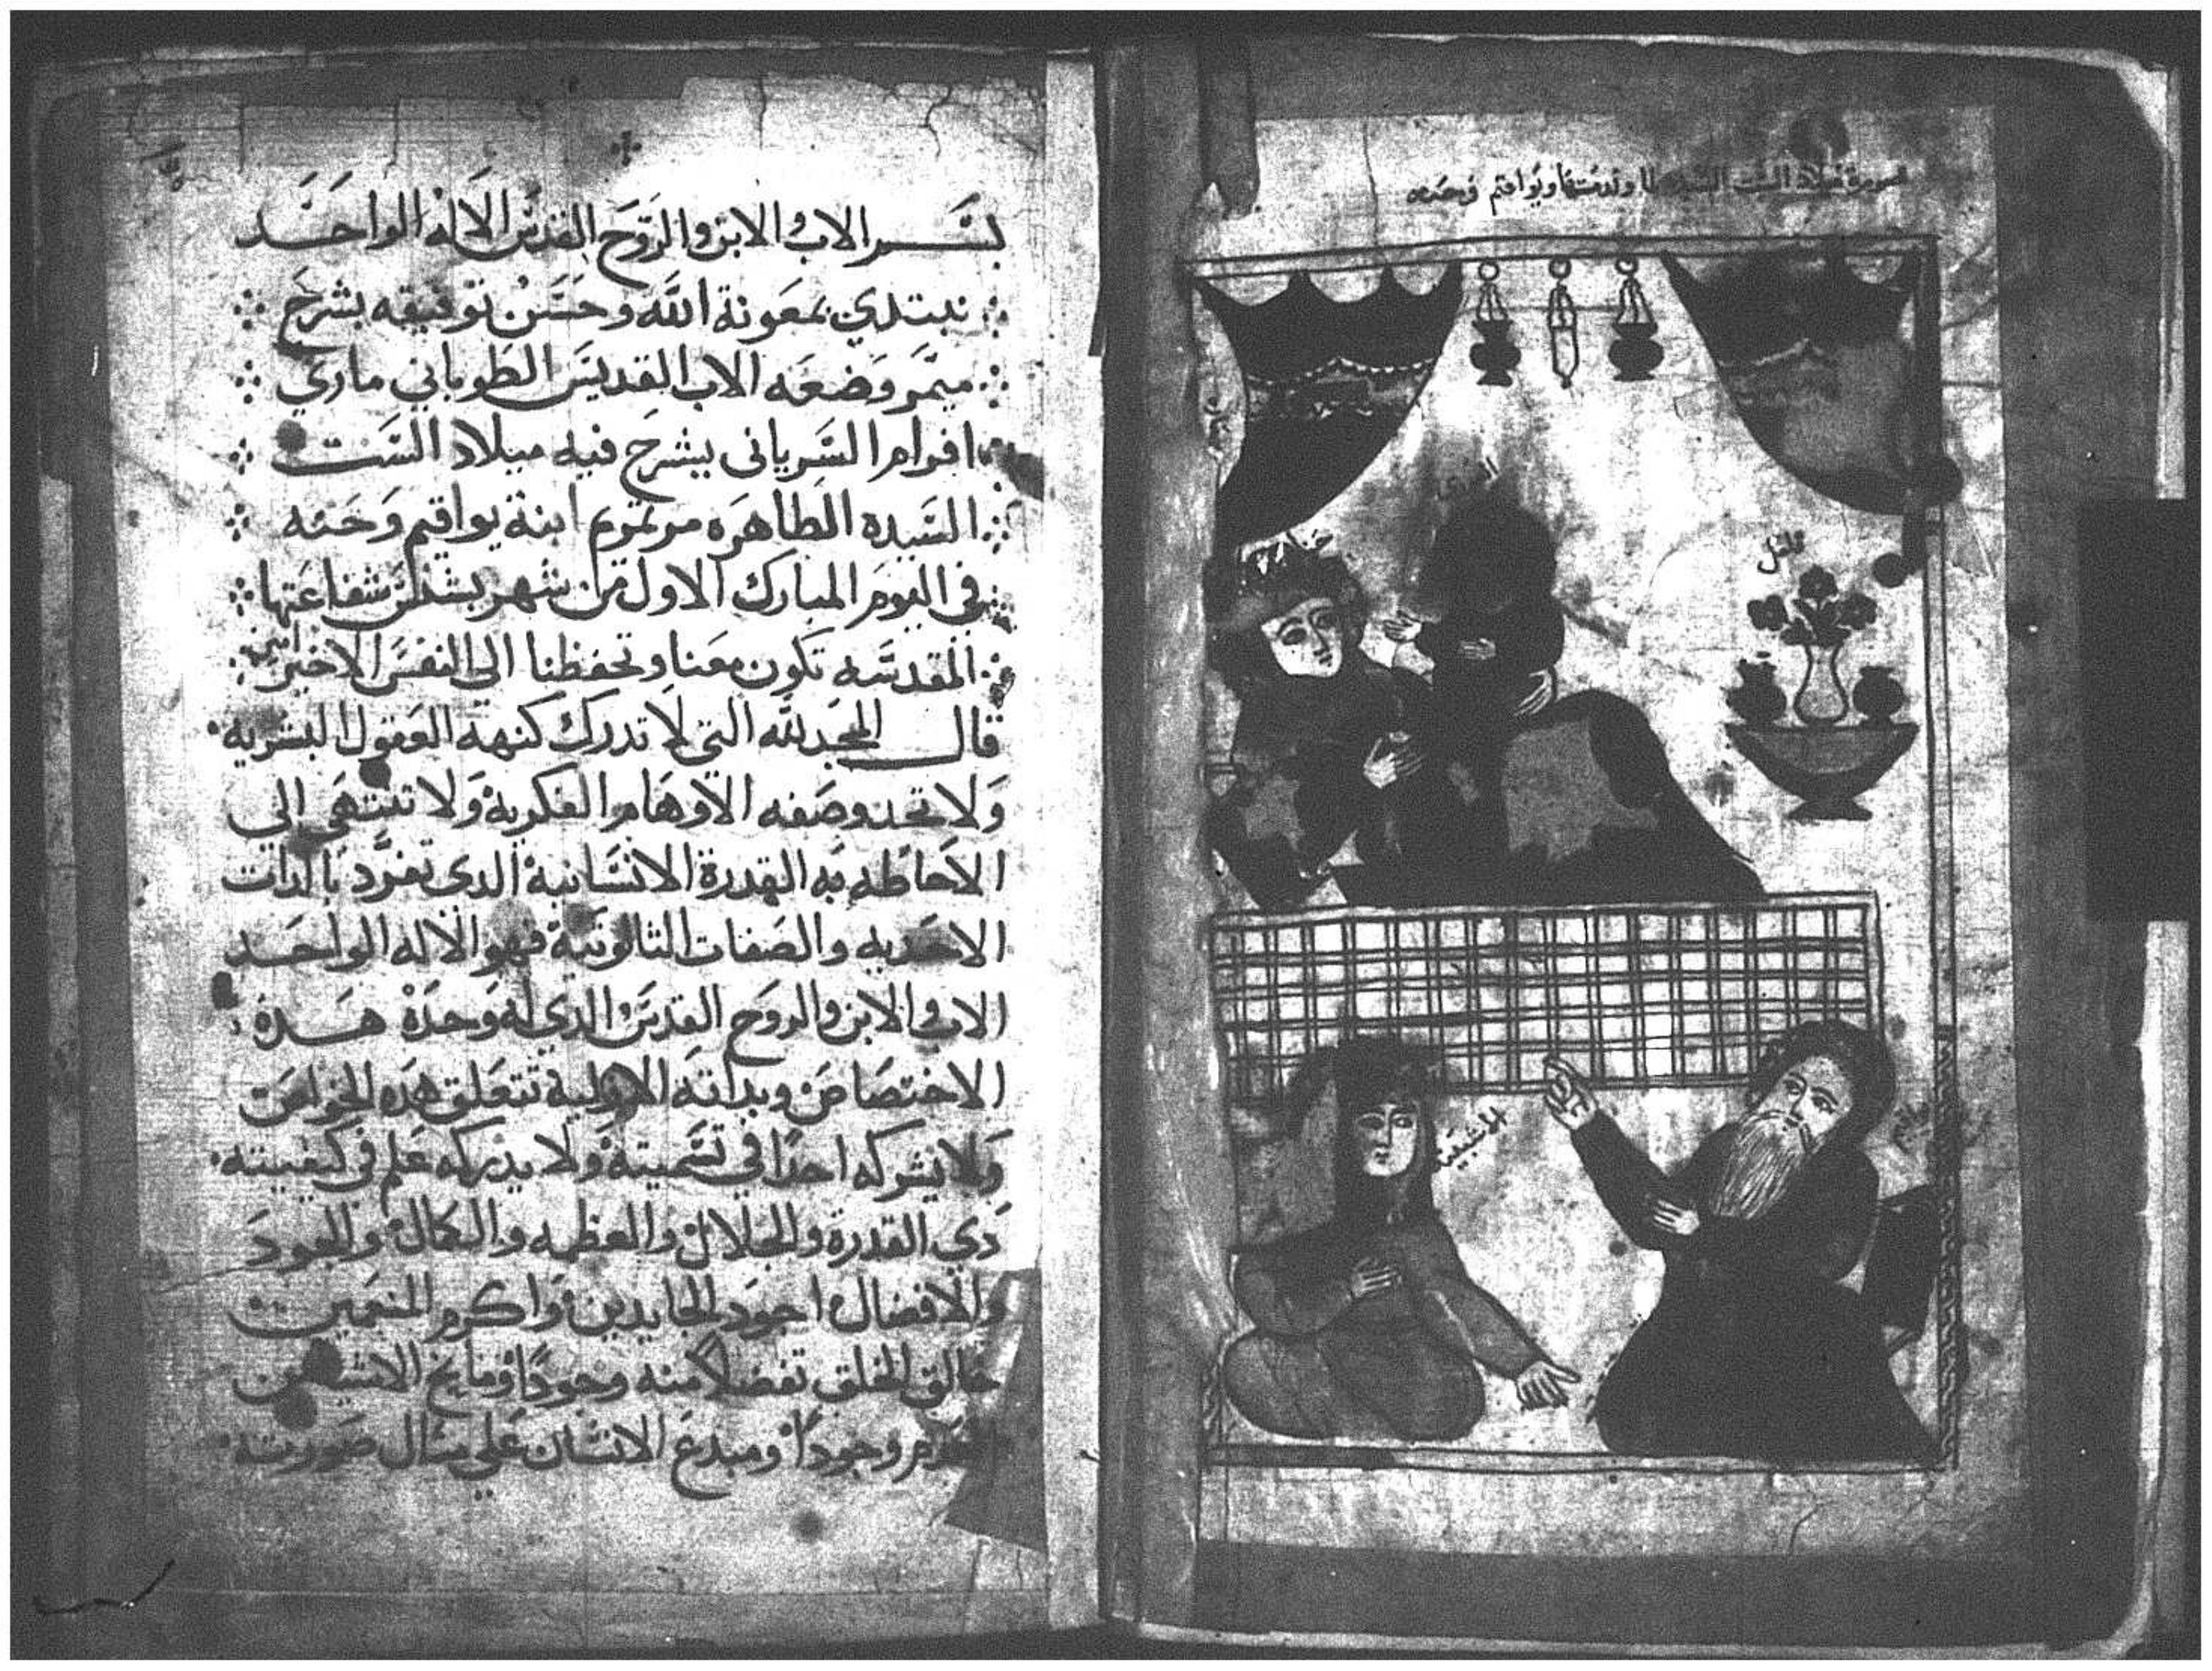 صورة ميلاد الست السيدة
حنه
المشيبينه
يواقيم
بســـم الاب والابن والروح القدس الاله الواحـــد
نبتدي بمعونة الله وحسن توفيقه بشرح
ميمر وضعه الاب القديس الطوباني ماري
افرام السرياني يشرح فيه ميلاد الست
السيده الطاهره مرتمريم ابنة يواقيم وحنه
في اليوم المبارك الاول من شهر بشنس شفاعتها
المقدسه تكون معنا وتحفظنا الى النفس الاخير امين
قال المجد لله التي لا تدرك كنهه العقول البشريه
ولا تحد وصفه الاوهام الفكرية ولا تنتهي الي
الاحاطه به القدرة الانسانية الدي تفرد بالدات
الاحديه والصفات الثالوتية فهو الاله الواحـــد
الاب والابن والروح القدس الدي له وحدة هـــدة
الاختصاص وبداته الازلية تتعلق هده الخواص
ولا نشركه احدا في تسميته ولا يدركه علم في كيفيته
دي القدرة والجلال والعظمه والكمال والجود
والافضال اجود الجايدين واكرم المنعمين
خالق الخلق تفضلا منه وجودا
وجودا ومبدع الانسان علي مثال صورته